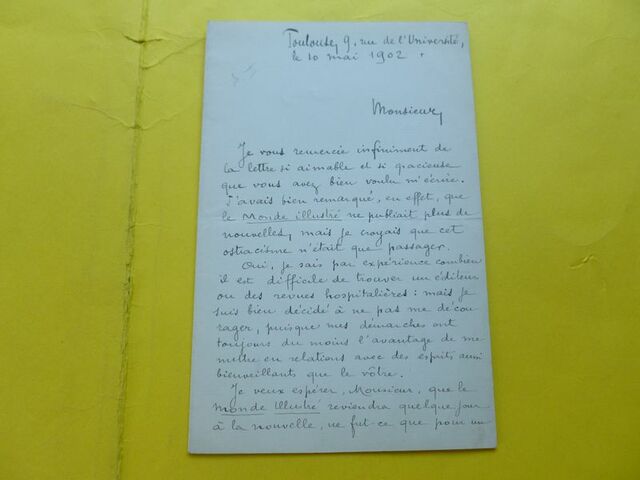 Toulouse, 9, rue de l'Université,
le 10 mai 1902.
Monsieur,
Je vous remercie infiniment de
la lettre si aimable et si gracieuse
que vous avez bien voulu m'écrire.
J'avais bien remarqué, en effet, que
le Monde illustré ne publiait plus de
nouvelles, mais je croyais que cet
ostracisme n'était que passager.
Oui, je sais par expérience combien
il est difficile de trouver un éditeur
ou des revues hospitalières : mais je
suis bien décidé à ne pas me décou-
rager, puisque mes démarches ont
toujours du moins l'avantage de me
mettre en relations avec des esprits aussi
bienveillants que le vôtre.
Je veux espérer, Monsieur, que le
Monde Illustré reviendra quelque jour
à la nouvelle, ne fut-ce que pour un